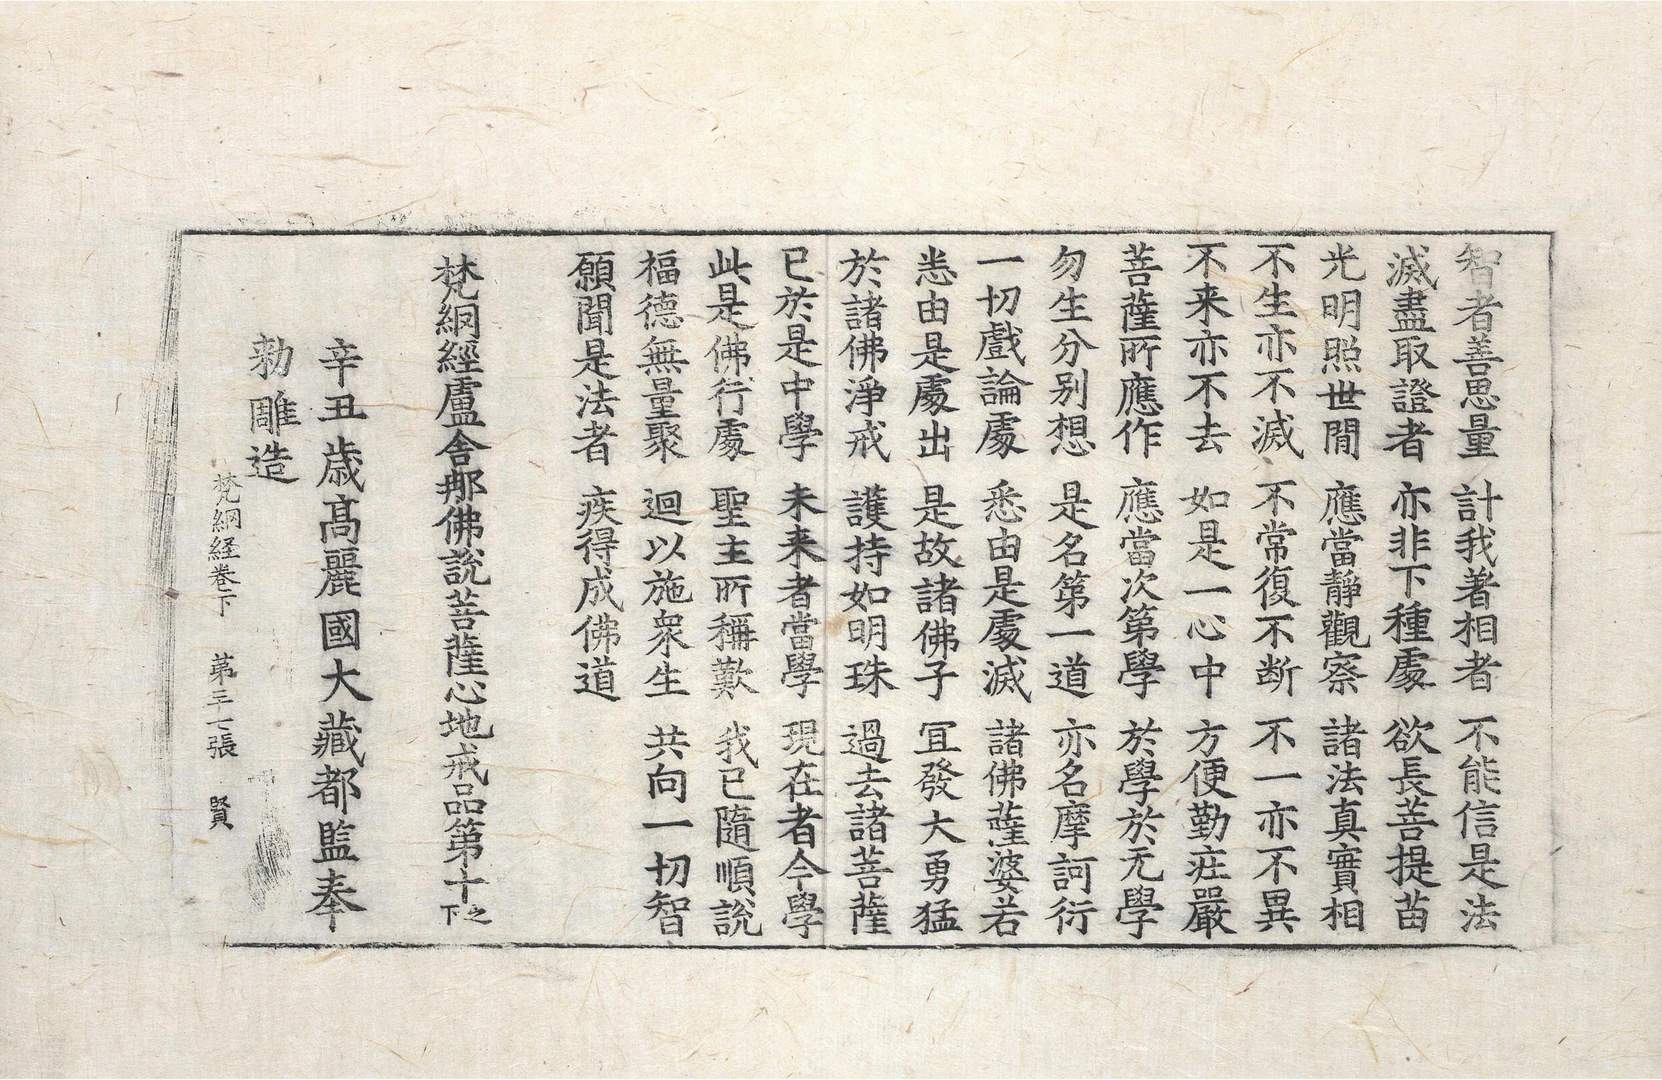 智者善思量 計我著相者 不能信是法
滅盡取證者 亦非下種處 欲長菩提苗
光明照世間 應當靜觀察 諸法真實相
不生亦不滅 不常復不断 不一亦不異
不来亦不去 如是一心中 方便勤莊嚴
菩薩所應作 應當次第學 於學於无學
勿生分別想 是名第一道 亦名摩訶衍
一切戲論處 悉由是處滅 諸佛薩婆若
悉由是處出 是故諸佛子 冝發大勇猛
於諸佛淨戒 護持如明珠 過去諸菩薩
已於是中學 未来者當學 現在者今學
此是佛行處 聖主所稱歎 我已隨順說
福德無量聚 迴以施衆生 共向一切智
願聞是法者 疾得成佛道
梵網經盧舍那佛說菩薩心地戒品第十之下
辛丑歳高麗國大藏都監奉
勅雕造
梵網経卷下 第三七張 賢